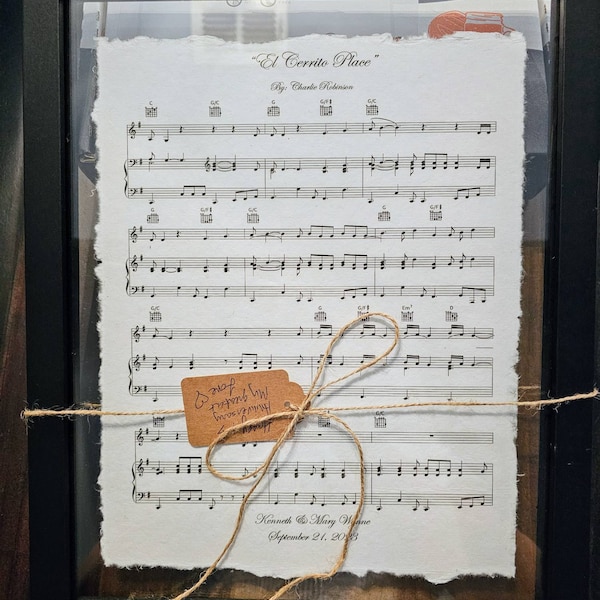 "El Cerrito Place"
By: Charlie Robinson
C G/C G G/F# G/C
G G/F# G/C G G/F#
G/C G G/F# Em7 D
G/C
Happy
Anniversary
My greatest
Love ♡
Kenneth & Mary Wynne
September 21, 2023